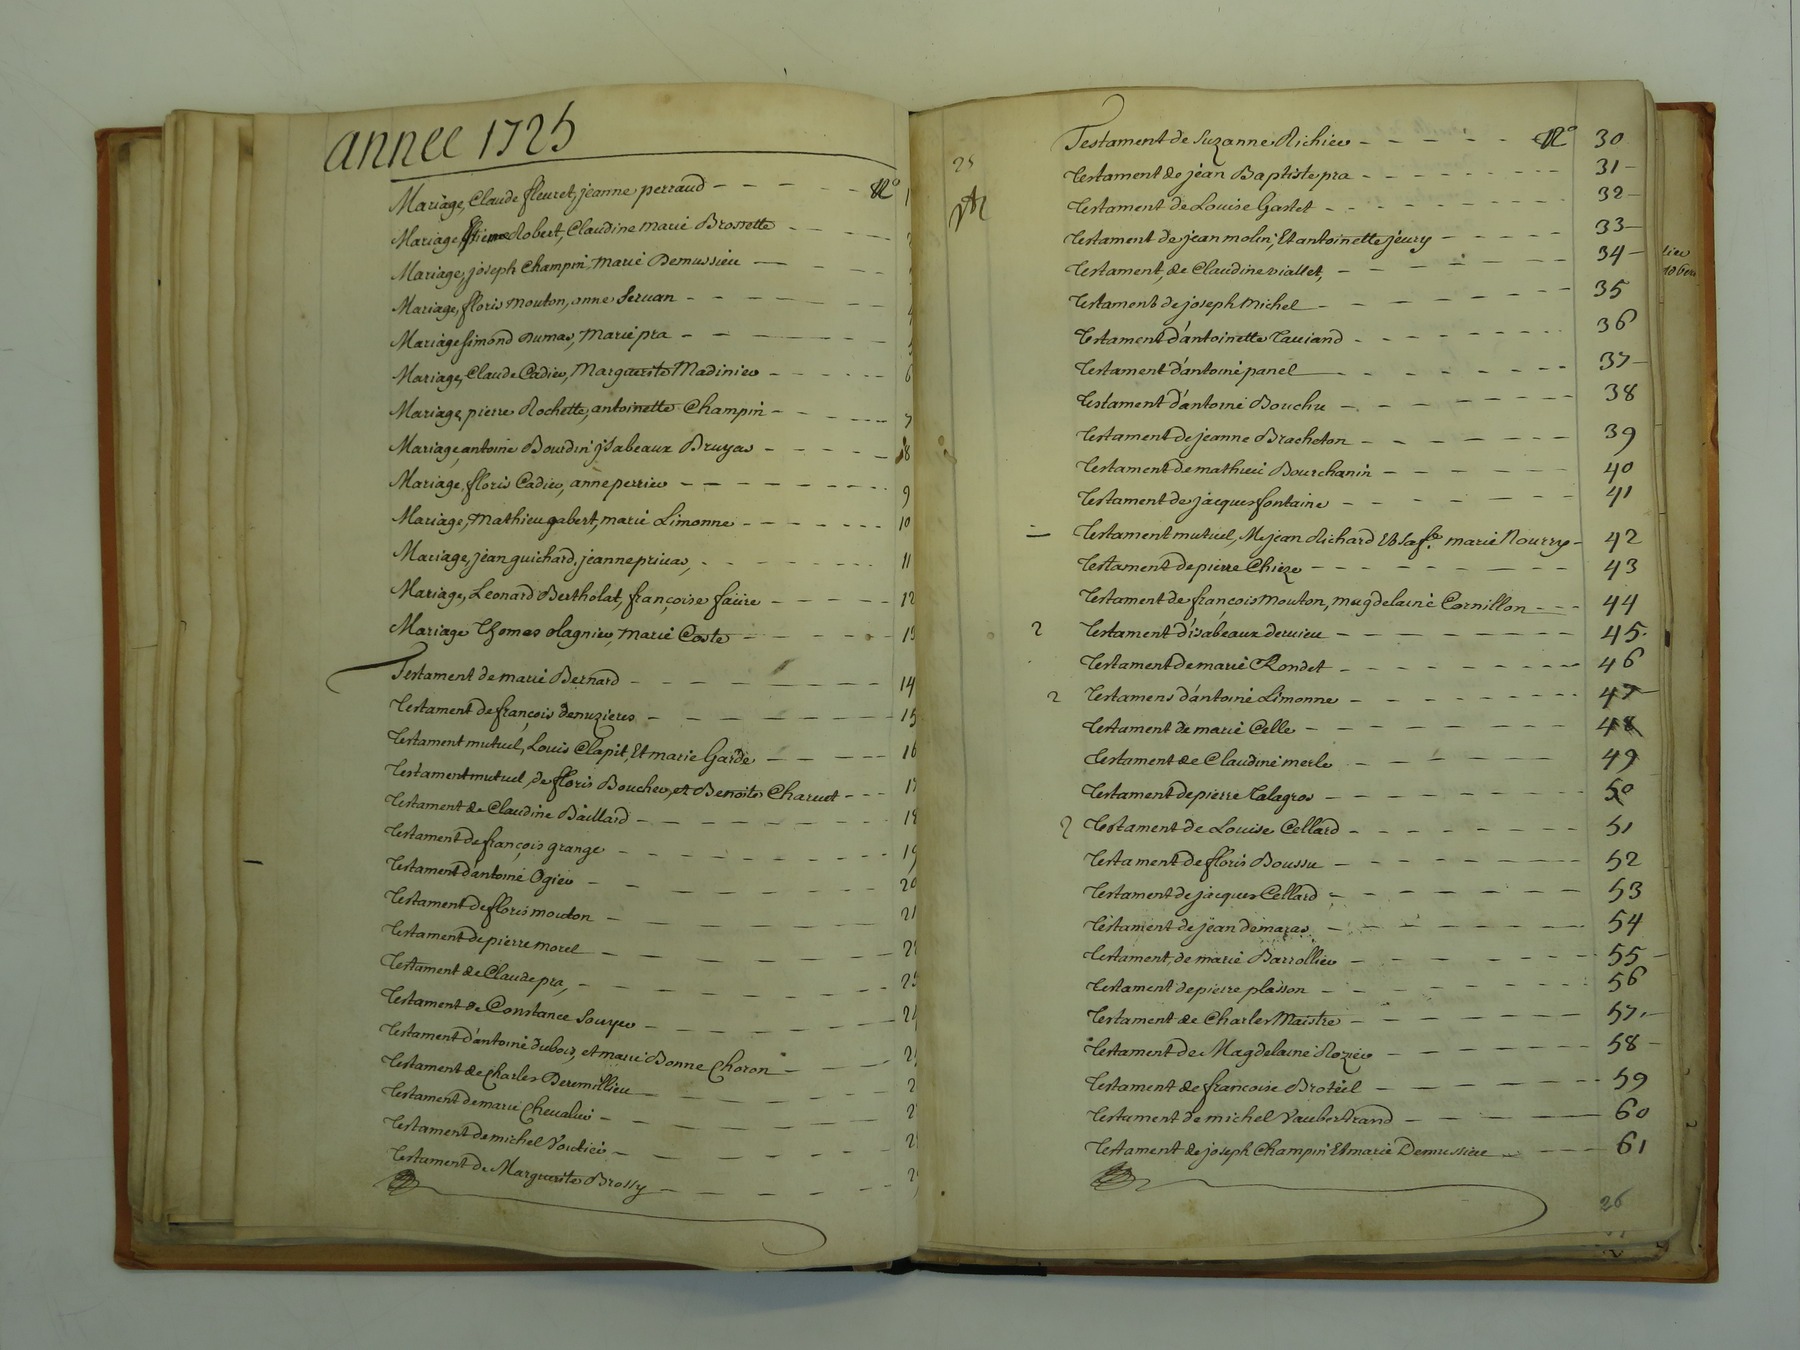 année 1725
Mariage, Claude fleuret, jeanne perraud - - - - - - N° 1
Mariage, Robert, Claudine marie Brossette - - - -
Mariage, joseph Champin, marie Demussieu - - - -
Mariage, floris mouton, anne Seruan - - - - - - 4
Mariage simond Dumas, Marie pra - - - - - - 5
Mariage, Claude Cadieu, Marguerite Madinieu - - - - - 6
Mariage, pierre Rochette, antoinette Champin - - - - - 7
Mariage, antoine Bourdin, jsabeaux Bruyas - - - - - 8
Mariage, floris Cadieu, anne perrieu - - - - - - - 9
Mariage, Mathieu gabert, marie Limonne - - - - - - 10
Mariage, jean guichard, jeanne priuas, - - - - - - 11
Mariage, Leonard Bertholat, françoise faüre - - - - - 12
Mariage Thomas olagnieu, marie Coste - - - - - 13
Testament de marie Bernard - - - - - - - 14
Testament de françois denuzieres - - - - - - - 15
Testament mutuel, Louis Clapit, Et marie Garde - - - 16
Testament mutuel, de floris Boucheu, et Benoite Charuet - - - 17
Testament de Claudine Baillard - - - - - - - 18
Testament de françois grange - - - - - - - 19
Testament d'antoine Ogieu - - - - - - - 20
Testament de floris mouton - - - - - - - 21
Testament de pierre morel - - - - - - - 22
Testament de Claude pra, - - - - - - - 23
Testament de Constance Souyeu - - - - - - 24
Testament d'antoine dubois, et marie Bonne Choron - - - 25
Testament de Charles Deremillieu - - - - - - 2
Testament de marie Cheualier - - - - - - - 2
Testament de michel Voudieu - - - - - - - 2
Testament de Marguerite Brossy - - - - - - 2
25
Testament de Suzanne Richieu - - - - - N° 30
Testament de jean Baptiste pra - - - - - - - 31 -
Testament de Louise Gastet - - - - - - - 32 -
Testament de jean molin, Et antoinette jeury - - - - - 33 -
Testament, de Claudine viallet, - - - - - - 34 -
Testament de joseph Michel - - - - - - - 35
Testament d'antoinette - - - - - - 36
Testament d'antoine panel - - - - - - - 37 -
Testament d'antoine Bouchu - - - - - - - 38
Testament de jeanne Bracheton - - - - - - - 39
Testament de mathieu Bourchanin - - - - - - 40
Testament de jacques fontaine - - - - - - 41
Testament mutuel, Me jean Richard Et sa fe. marie Nourry - 42
Testament de pierre Chieze - - - - - - - 43
Testament de françois Mouton, magdelaine Cornillon - - - 44
2 Testament d'isabeaux deruieu - - - - - - - 45.
Testament de marie Rondet - - - - - - - 46
2 Testamens d'antoine Limonne - - - - - - - 47 -
Testament de marie Celle - - - - - - - 48
Testament de Claudine merle - - - - - - - 49
Testament de pierre Talagros - - - - - - - 50
2 Testament de Louise Cellard - - - - - - - 51
Testament de floris Boussu - - - - - - - 52
Testament de jacques Cellard - - - - - - - 53
Testament de jean demaras - - - - - - - 54
Testament, de marie Barrollieu - - - - - - - 55 -
Testament de pierre plasson - - - - - - - 56
Testament de Charles Maistre - - - - - - - 57. -
Testament de Magdelaine Rozieu - - - - - - 58 -
Testament de francoise Broteil - - - - - - 59
Testament de michel Vaubertrand - - - - - - 60
Testament de joseph Champin Et marie Demussieu - - - - 61
26